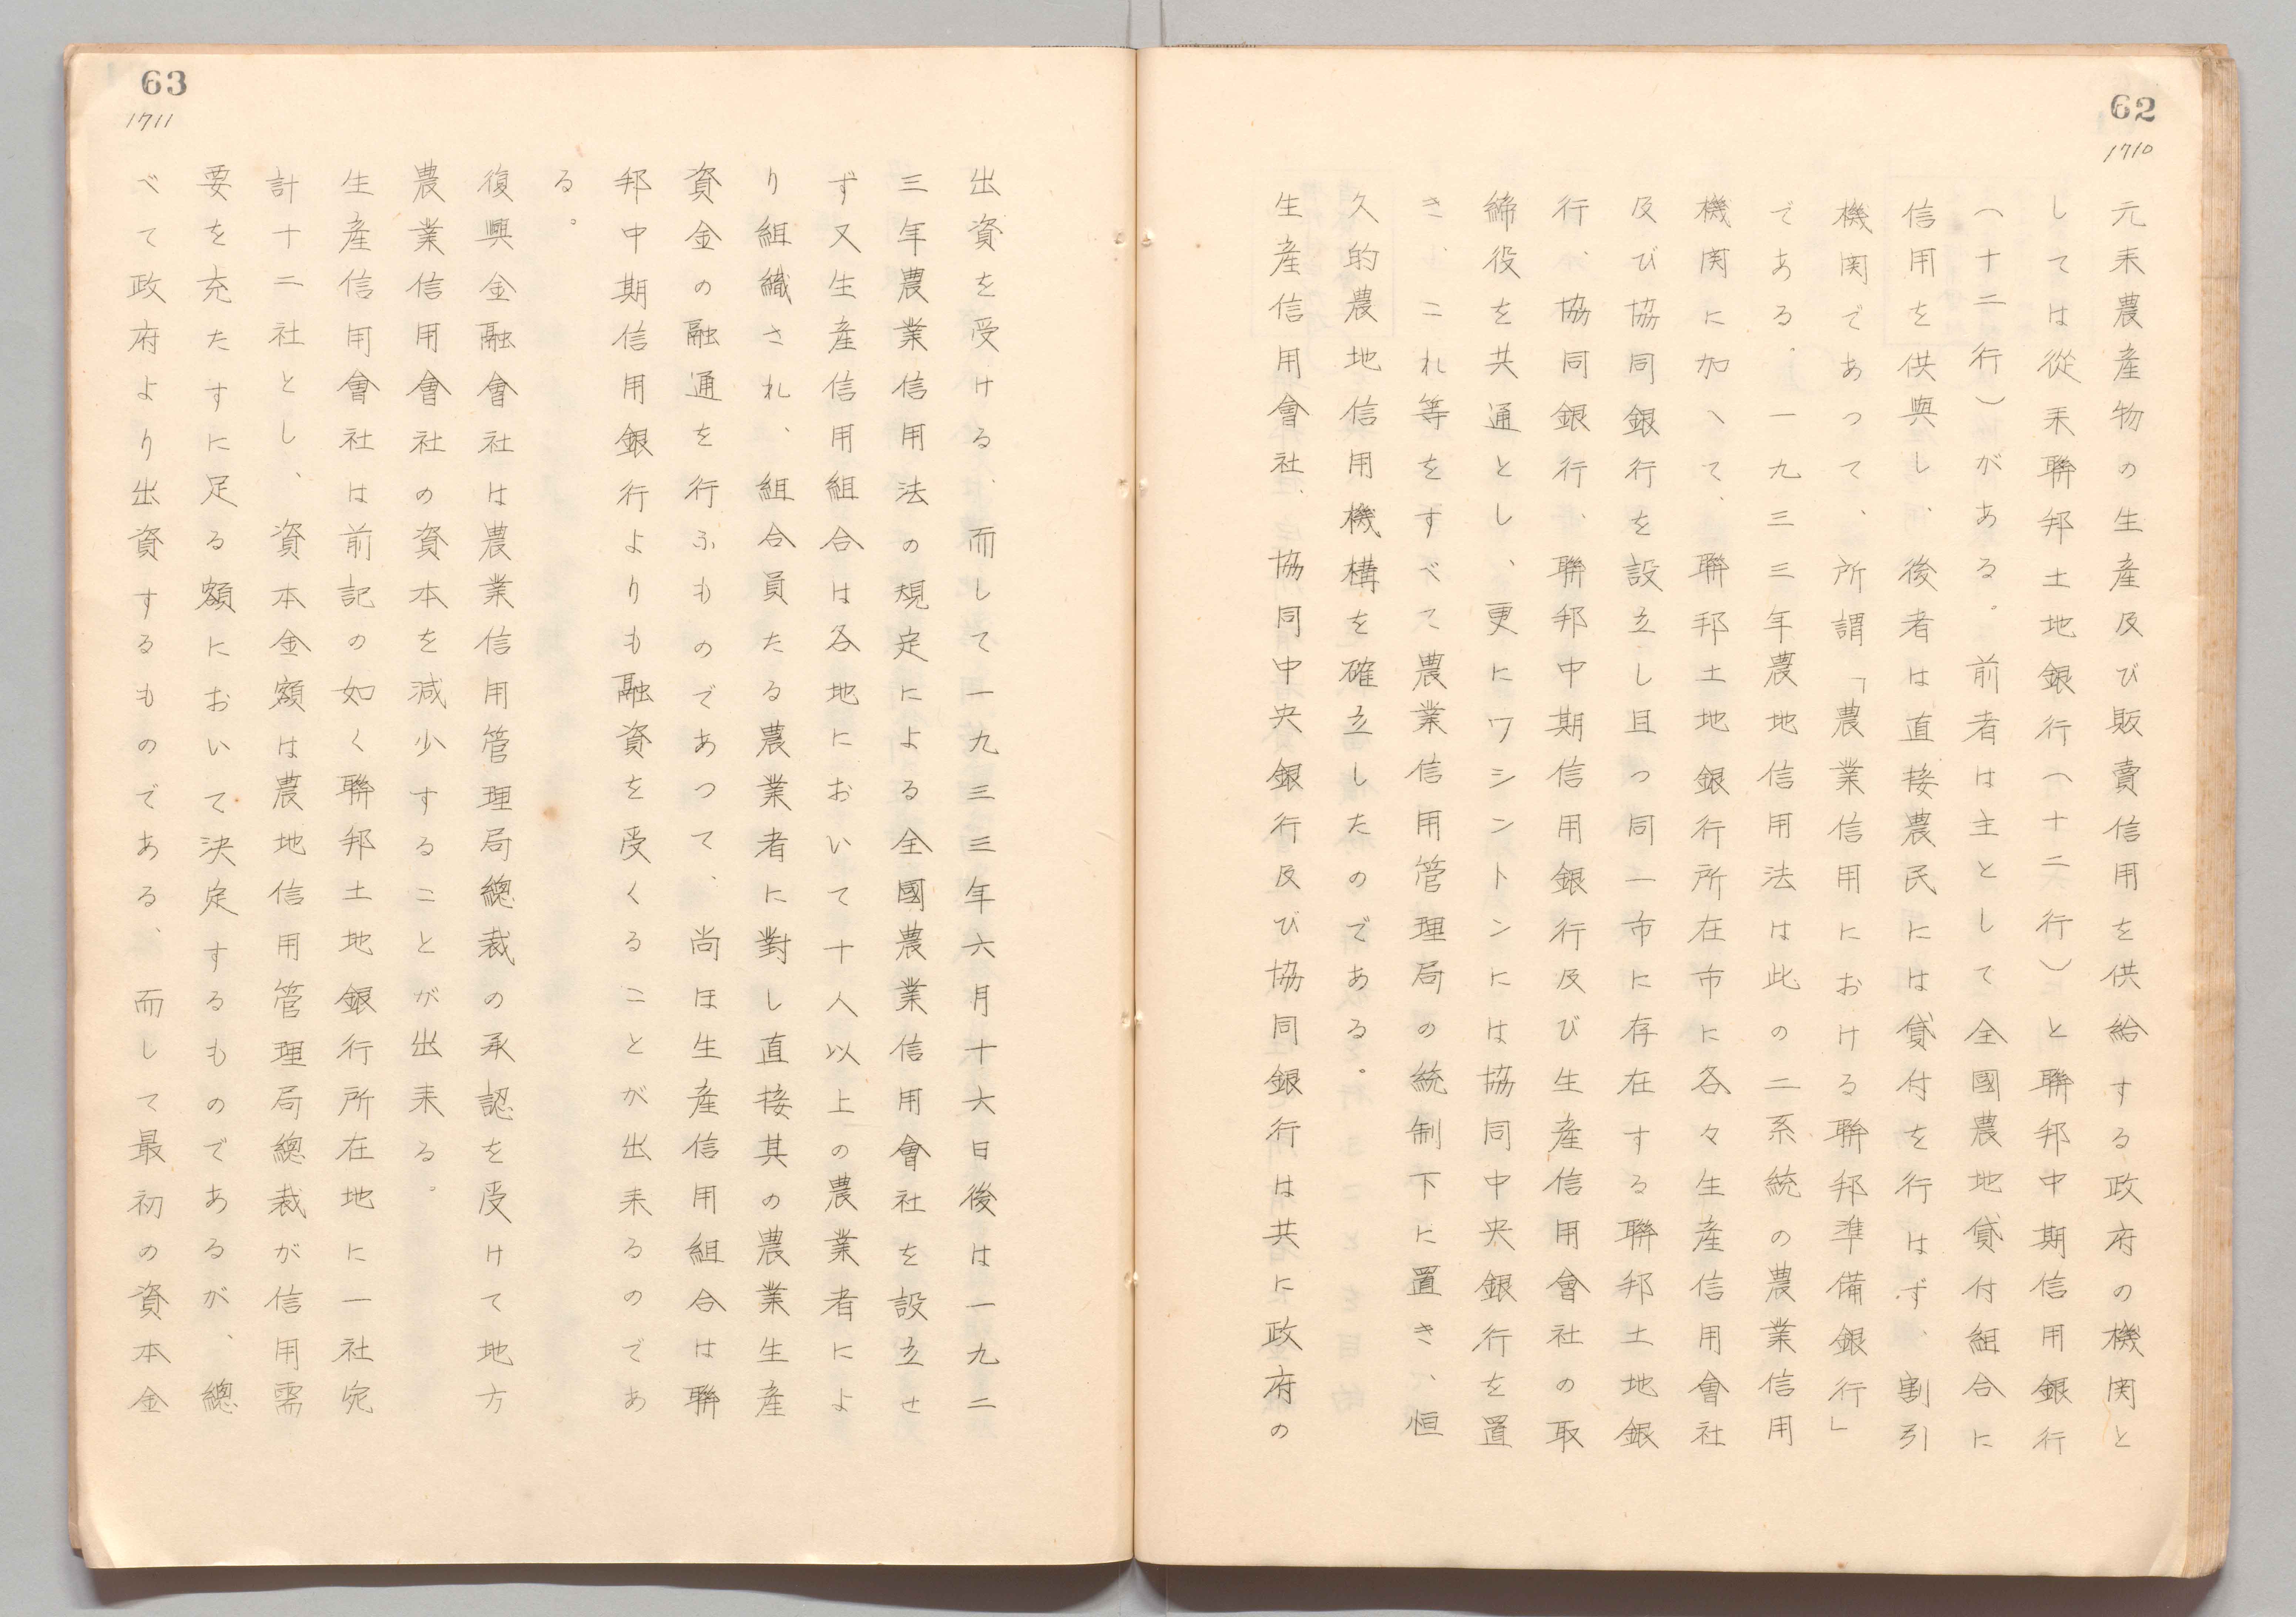 62
1710
元来農産物の生産及び販賣信用を供給する政府の機関と
しては從来聯邦土地銀行(十二行)と聯邦中期信用銀行
(十二行)がある。前者は主として全國農地貸付組合に
信用を供與し、後者は直接農民には貸付を行はず、割引
機関であつて、所謂「農業信用における聯邦準備銀行」
である。一九三三年農地信用法は此の二系統の農業信用
機関に加へて、聯邦土地銀行所在市に各々生産信用會社
及び協同銀行を設立し且つ同一市に存在する聯邦土地銀
行、協同銀行、聯邦中期信用銀行及び生産信用會社の取
締役を共通とし、更にワシントンには協同中央銀行を置
き、これ等をすべて農業信用管理局の統制下に置き、恒
久的農地信用機構を確立したのである。
生産信用會社、協同中央銀行及び協同銀行は共に政府の
63
1711
出資を受ける、而して一九三三年六月十六日後は一九二
三年農業信用法の規定による全國農業信用會社を設立せ
ず又生産信用組合は各地において十人以上の農業者によ
り組織され、組合員たる農業者に對し直接其の農業生産
資金の融通を行ふものであつて、尚ほ生産信用組合は聯
邦中期信用銀行よりも融資を受くることが出来るのであ
る。
復興金融會社は農業信用管理局總裁の承認を受けて地方
農業信用會社の資本を減少することが出来る。
生産信用會社は前記の如く聯邦土地銀行所在地に一社宛
計十二社とし、資本金額は農地信用管理局總裁が信用需
要を充たすに足る額において決定するものであるが、總
べて政府より出資するものである、而して最初の資本金